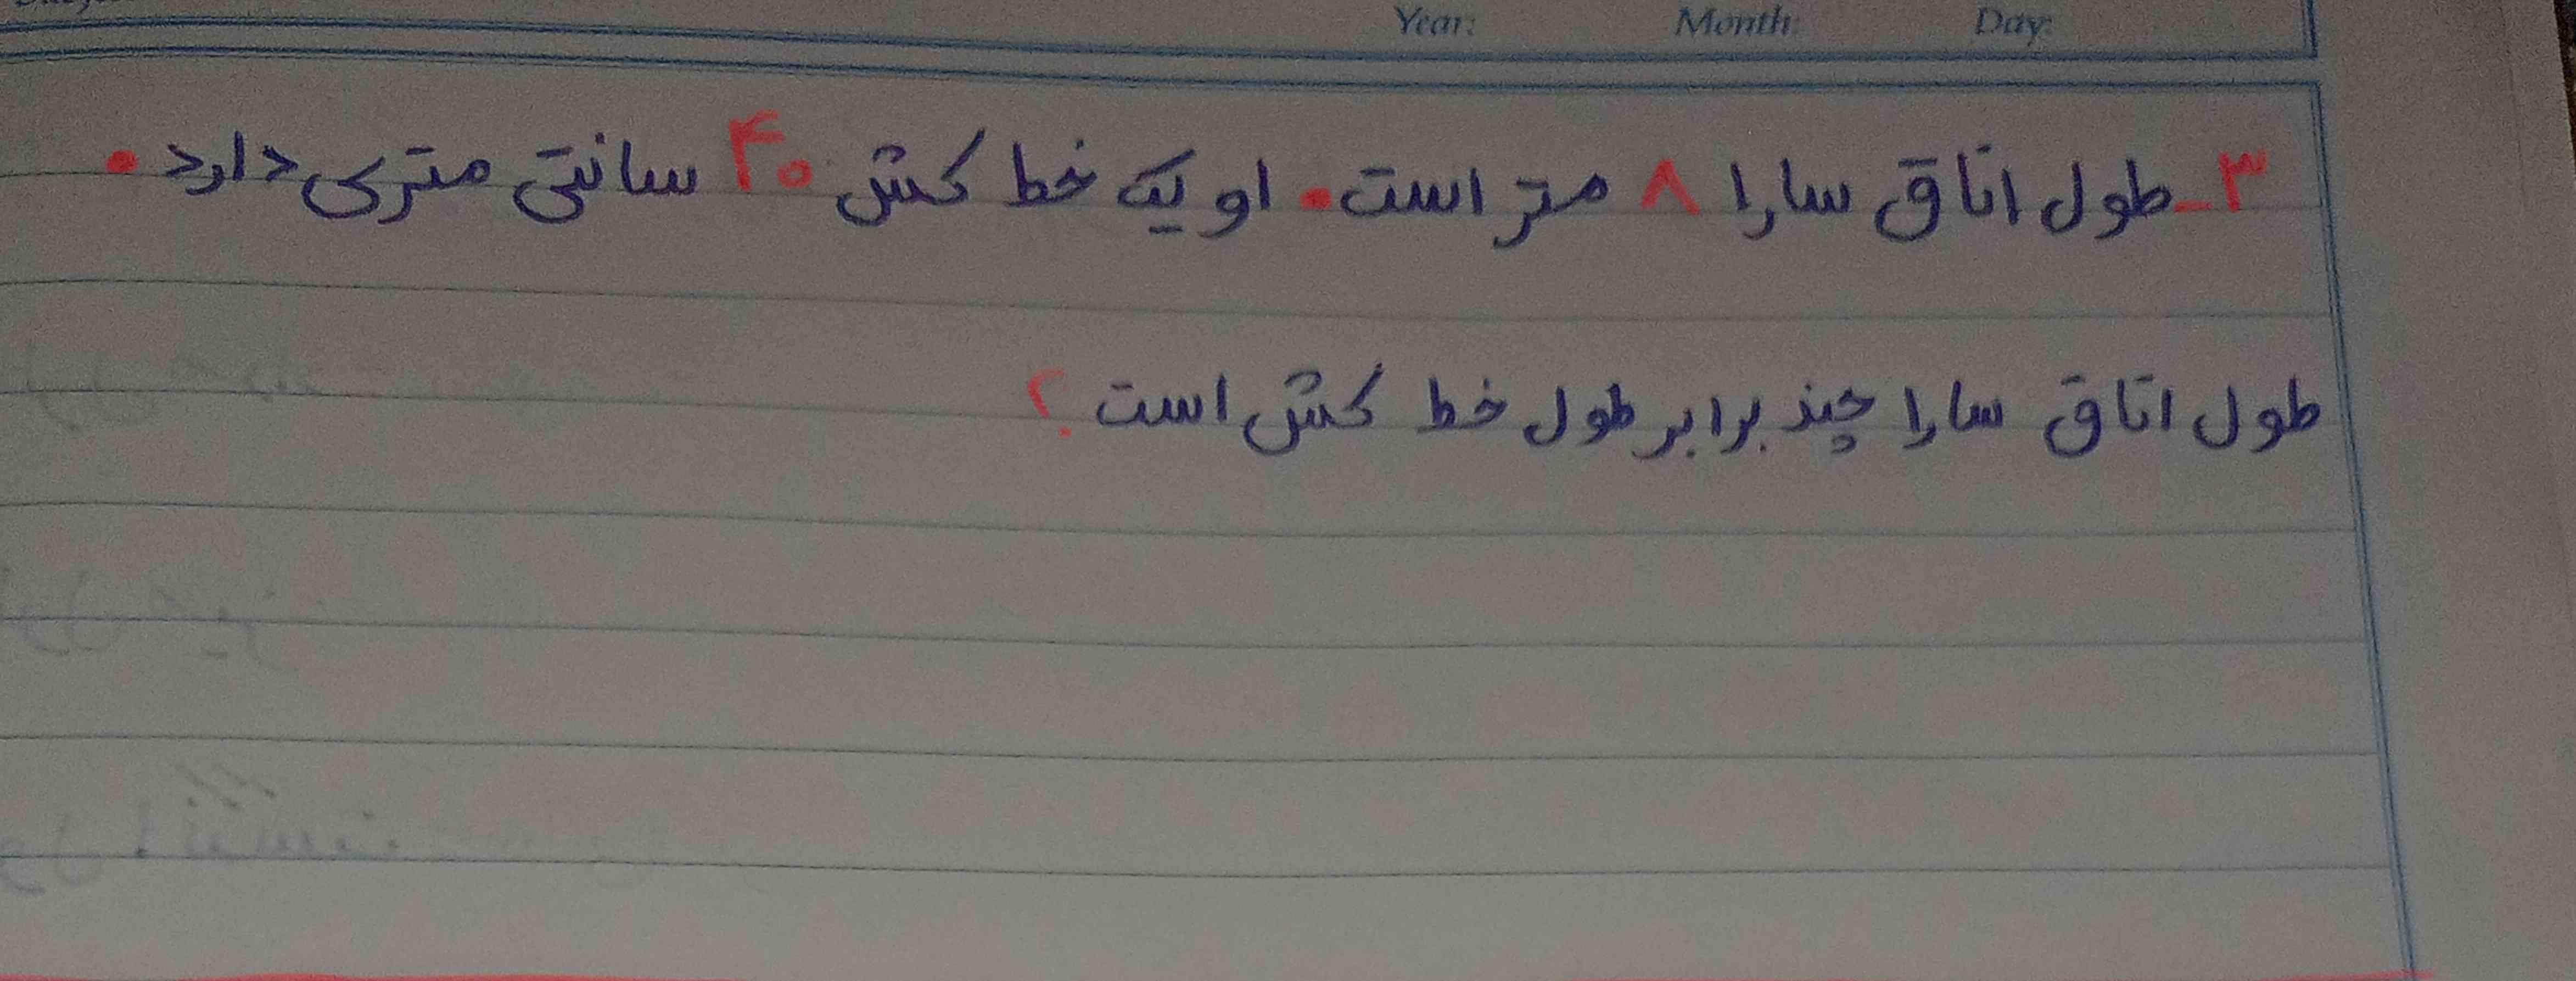 Year: Month: Day:
۳_ طول اتاق سارا ۸ متر است. او یک خط کش ۴۰ سانتی متری دارد.
طول اتاق سارا چند برابر طول خط کش است؟